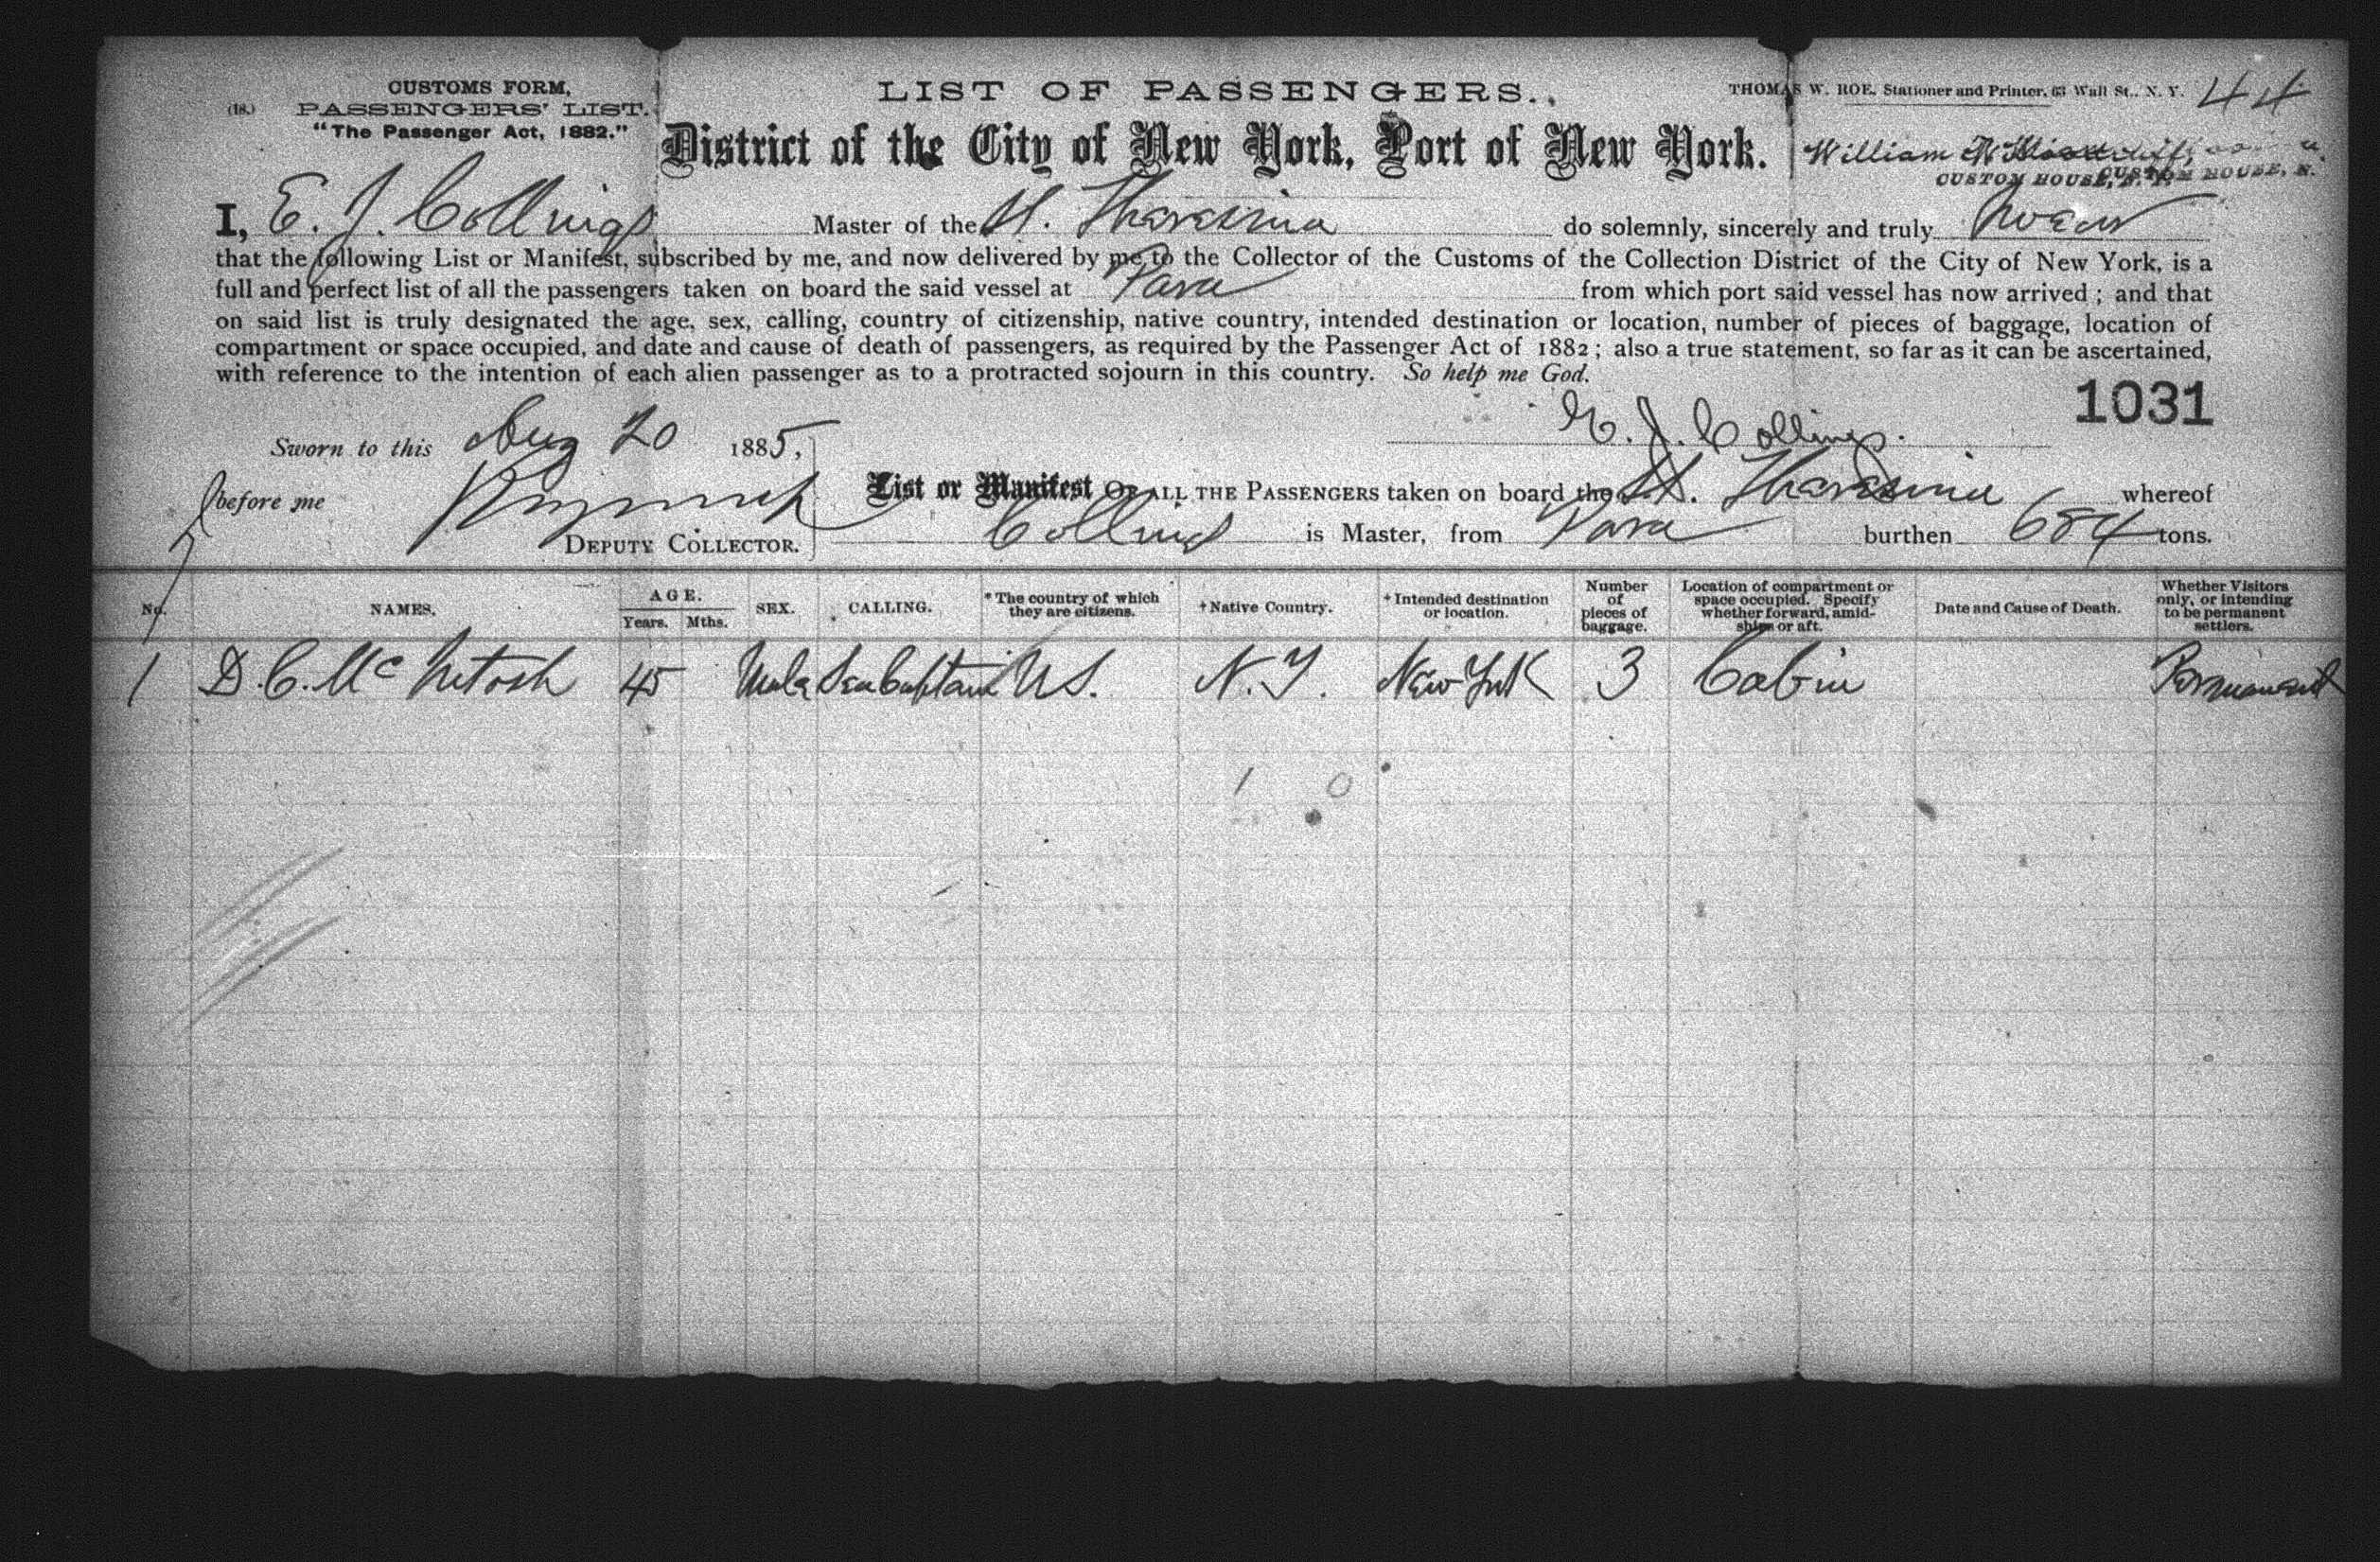 CUSTOMS FORM,
(18.) PASSENGERS' LIST.
"The Passenger Act, 1882."
LIST OF PASSENGERS.
THOMAS W. ROE, Stationer and Printer, 63 Wall St., N. Y.
44
District of the City of New York, Port of New York.
William
CUSTOM HOUSE, N. Y. CUSTOM HOUSE, N.
I, E. J. Collings Master of the Theresina do solemnly, sincerely and truly swear
that the following List or Manifest, subscribed by me, and now delivered by me to the Collector of the Customs of the Collection District of the City of New York, is a
full and perfect list of all the passengers taken on board the said vessel at Para from which port said vessel has now arrived ; and that
on said list is truly designated the age, sex, calling, country of citizenship, native country, intended destination or location, number of pieces of baggage, location of
compartment or space occupied, and date and cause of death of passengers, as required by the Passenger Act of 1882 ; also a true statement, so far as it can be ascertained,
with reference to the intention of each alien passenger as to a protracted sojourn in this country. So help me God.
1031
Sworn to this Aug 20 1885,
E. J. Collings.
before me
DEPUTY COLLECTOR.
List or Manifest OF ALL THE PASSENGERS taken on board the Theresina whereof
Collings is Master, from Para burthen 684 tons.
No. NAMES. AGE. Years. Mths. SEX. CALLING. *The country of which they are citizens. †Native Country. †Intended destination or location. Number of pieces of baggage. Location of compartment or space occupied. Specify whether forward, amidships or aft. Date and Cause of Death. Whether Visitors only, or intending to be permanent settlers.
1 D. C. McIntosh 45 Male Sea Captain U S. N. Y. New York 3 Cabin Permanent
1 0